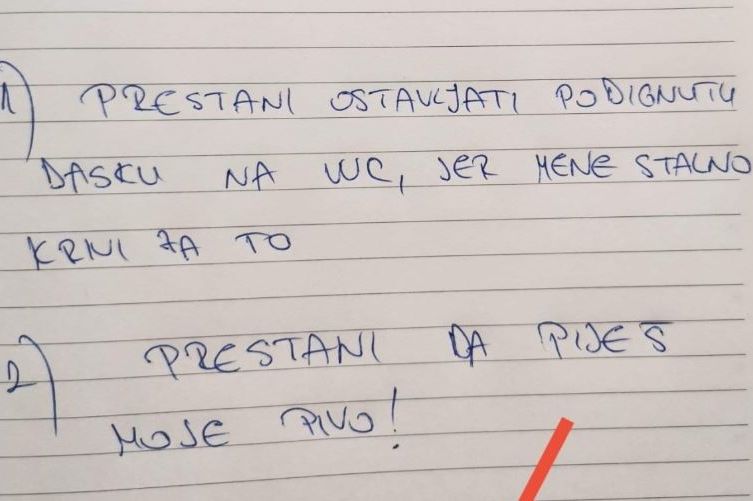 1) PRESTANI OSTAVLJATI PODIGNUTU
DASKU NA WC, JER MENE STALNO
KRIVI ZA TO
2) PRESTANI DA PIJEŠ
MOJE PIVO!